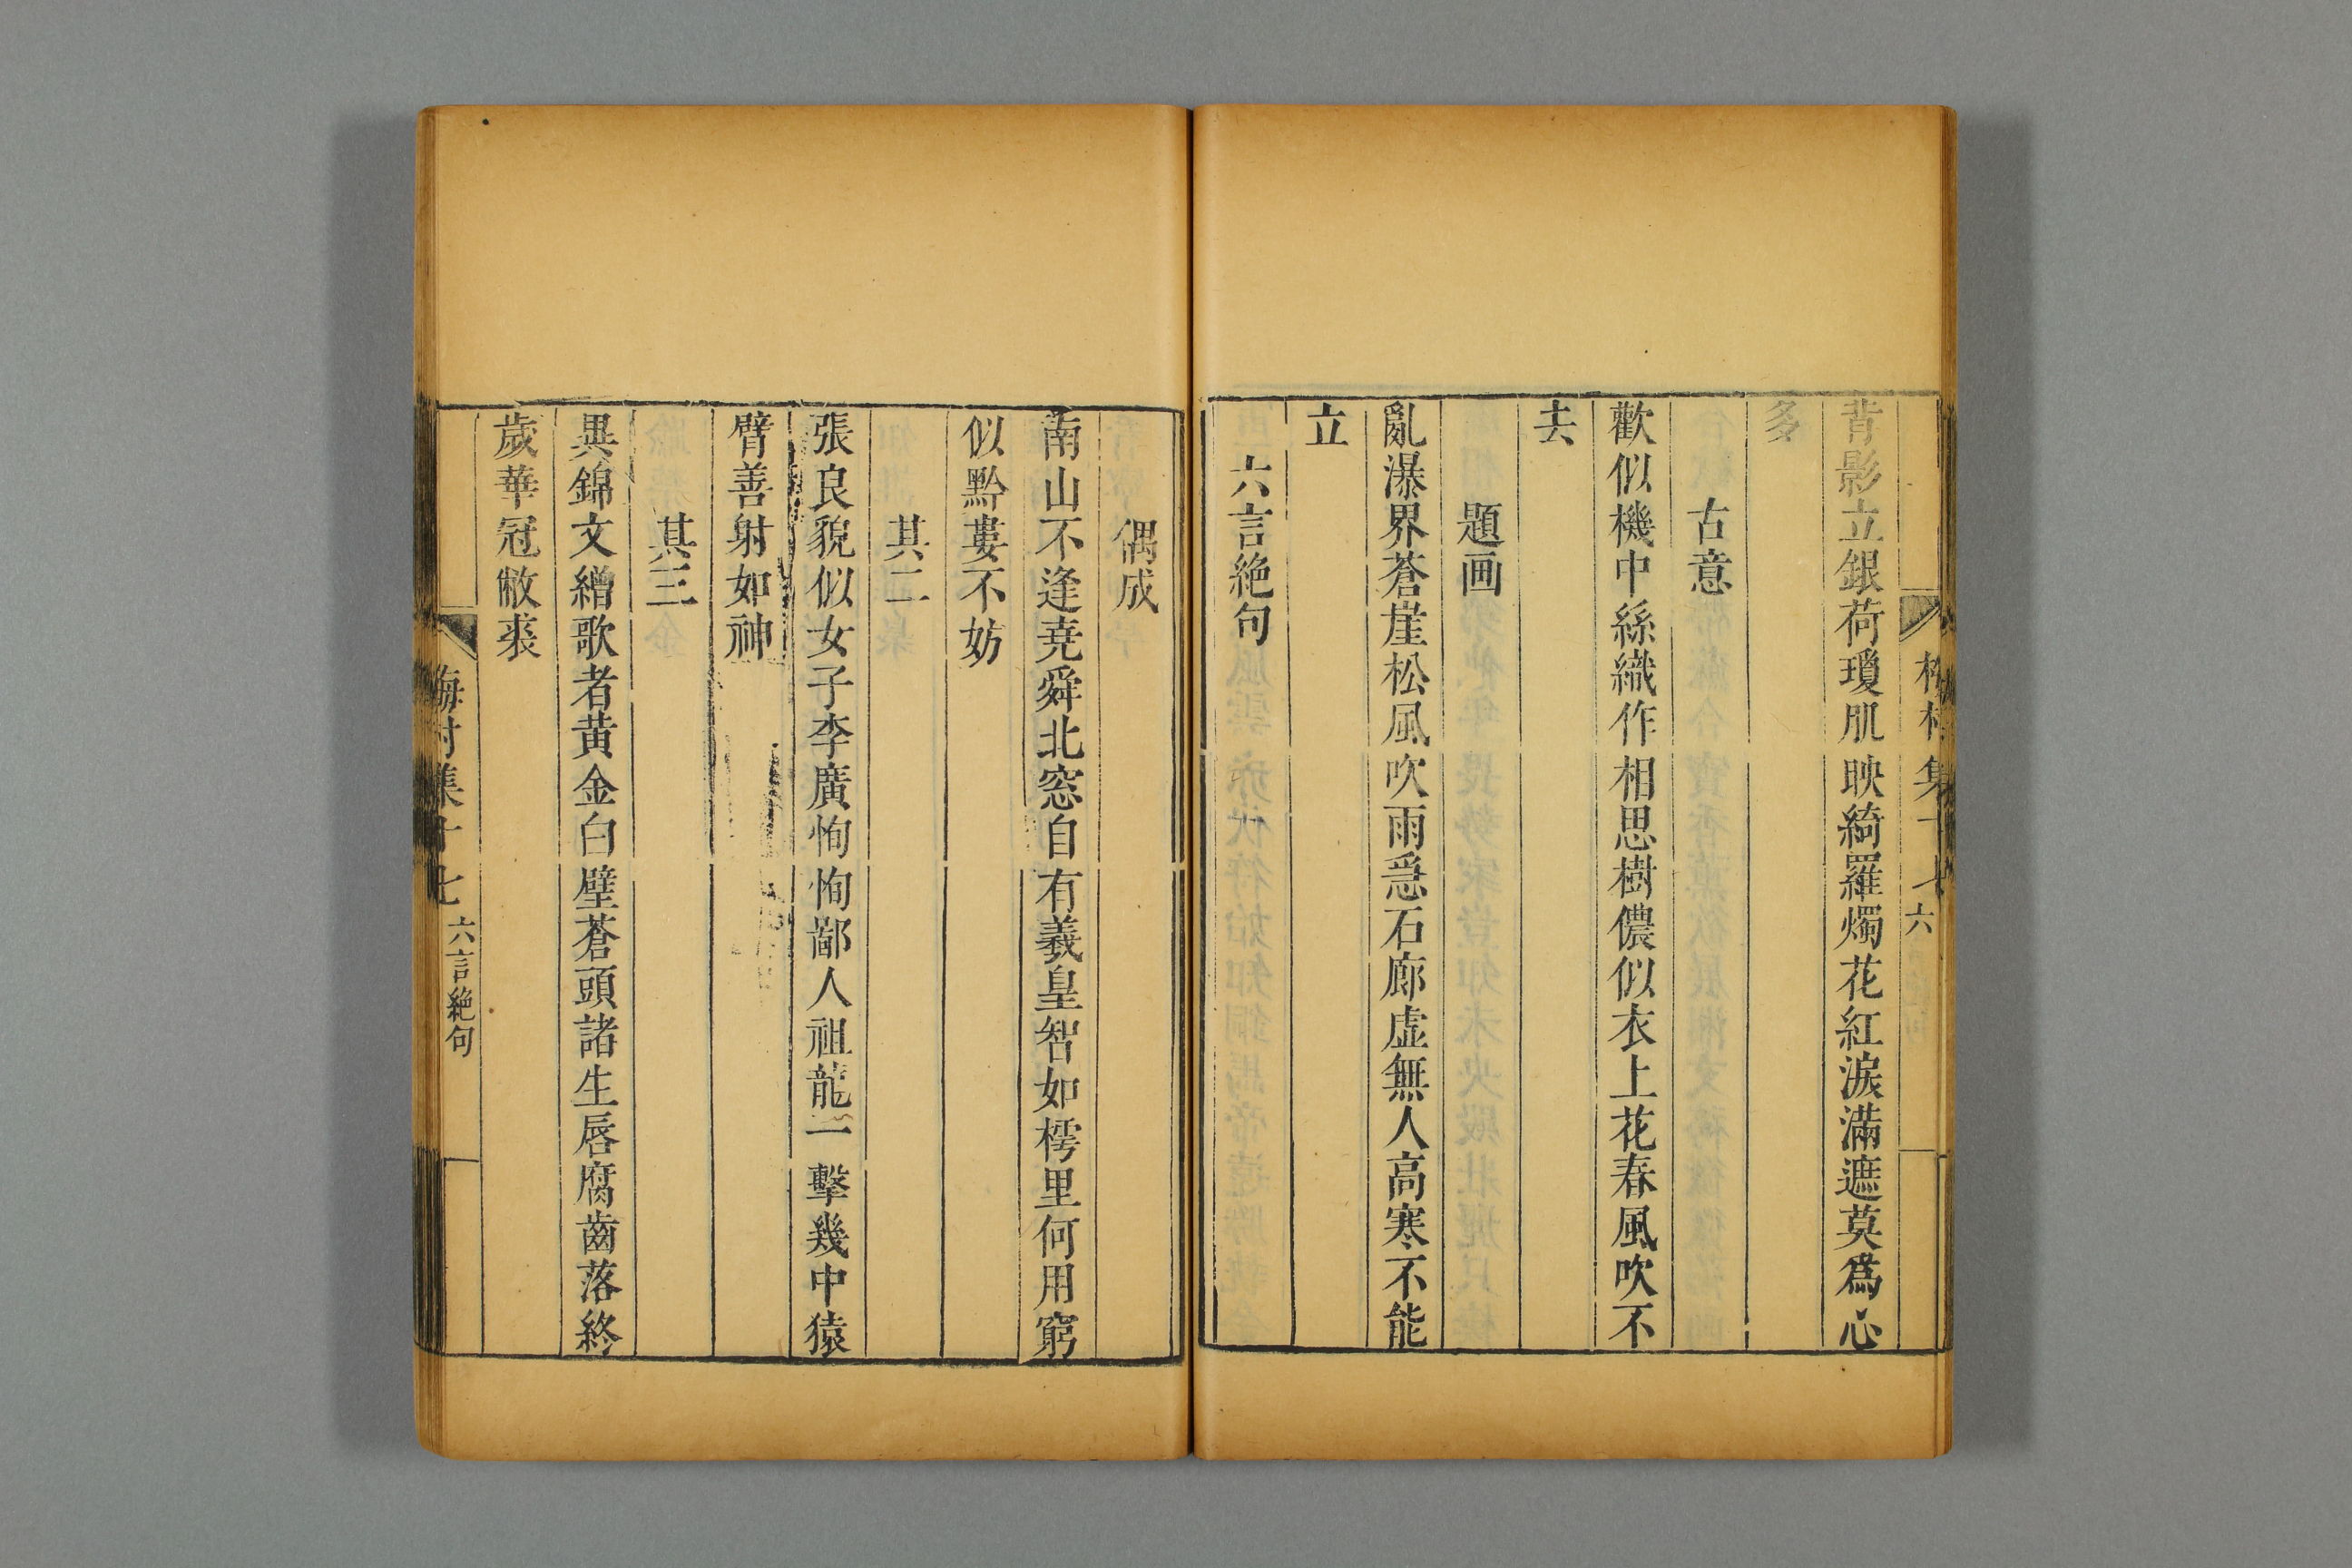 背影立銀荷瓊肌映綺羅燭花紅淚滿遮莫爲心
多
古意
歡似機中絲織作相思樹儂似衣上花春風吹不
去
題画
亂瀑界蒼崖松風吹雨急石廊虚無人高寒不能
立
六言絶句
偶成
南山不逢堯舜北窓自有羲皇智如樗里何用窮
似黔婁不妨
其二
張良貌似女子李廣恂恂鄙人祖龍一擊幾中猿
臂善射如神
其三
異錦文繒歌者黄金白璧蒼頭諸生唇腐齒落終
歲華冠敝裘
梅村集十七 六言絶句